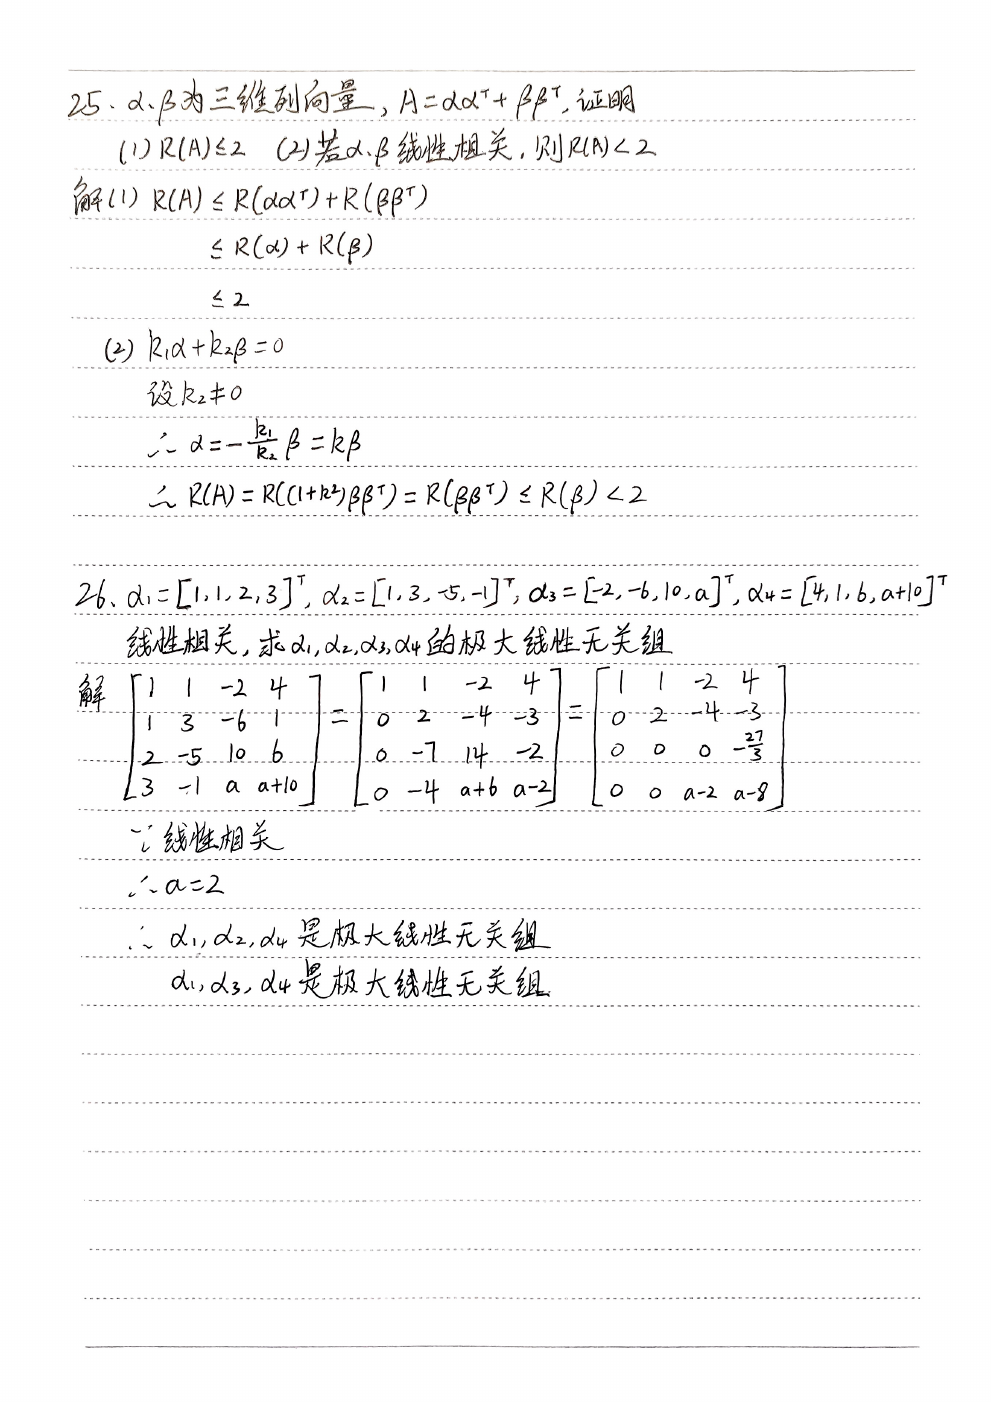 25、α、β为三维列向量, A=αα^T+ββ^T,证明
(1) R(A)≤2 (2)若α、β线性相关,则R(A)<2
解(1) R(A) ≤ R(αα^T)+R(ββ^T)
≤ R(α)+R(β)
≤ 2
(2) k₁α+k₂β=0
设k₂≠0
∴ α=-k₁/k₂ β=kβ
∴ R(A)=R((1+k²)ββ^T)=R(ββ^T) ≤ R(β)<2
26、α₁=[1,1,2,3]^T, α₂=[1,3,-5,-1]^T, α₃=[-2,-6,10,a]^T, α₄=[4,1,6,a+10]^T
线性相关,求α₁,α₂,α₃,α₄的极大线性无关组
解 [1 1 -2 4] = [1 1 -2 4] = [1 1 -2 4]
[1 3 -6 1] [0 2 -4 -3] [0 2 -4 -3]
[2 -5 10 6] [0 -7 14 -2] [0 0 0 -27/3]
[3 -1 a a+10] [0 -4 a+6 a-2] [0 0 a-2 a-8]
∵线性相关
∴a=2
∴ α₁,α₂,α₄是极大线性无关组
α₁,α₃,α₄是极大线性无关组